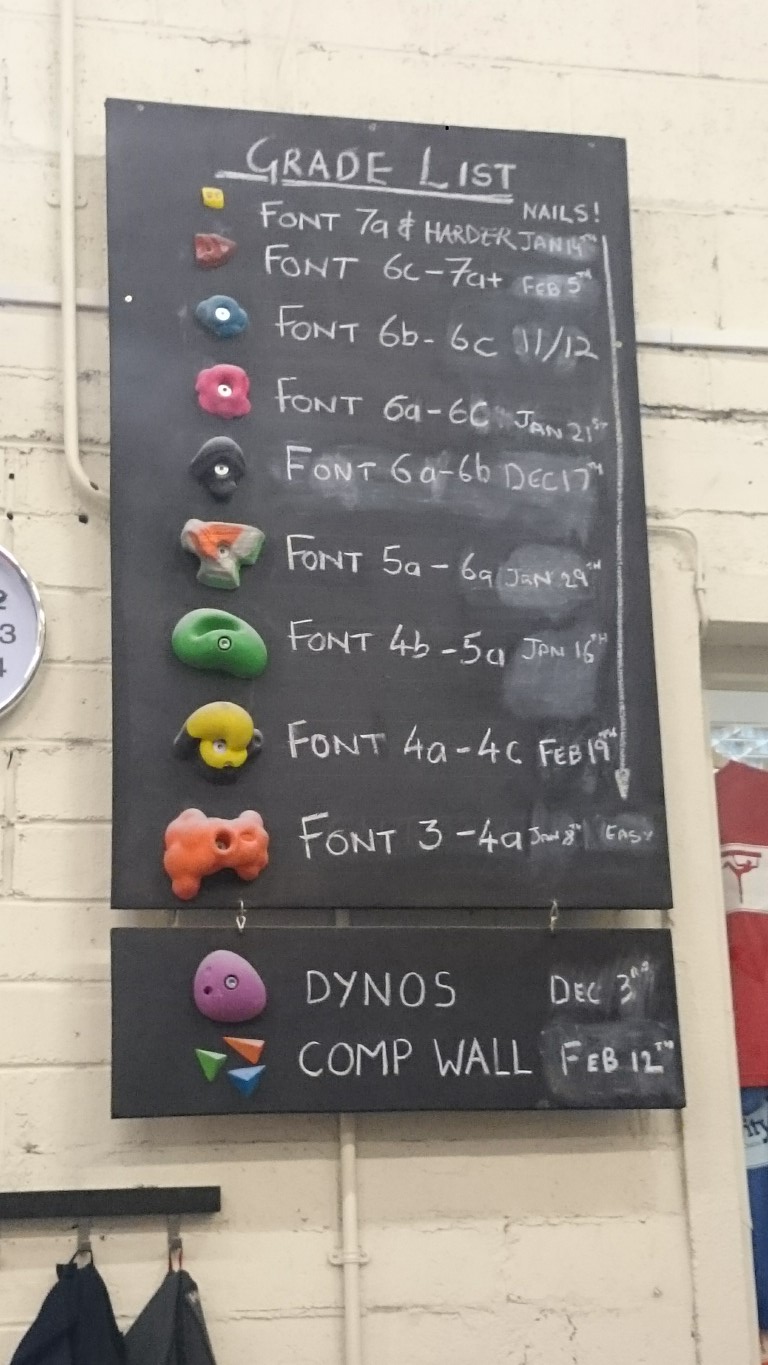 GRADE LIST
NAILS!
FONT 7a & HARDER JAN 14TH
FONT 6c-7a+ FEB 5TH
FONT 6b-6c 11/12
FONT 6a-6C JAN 21ST
FONT 6a-6b DEC 17TH
FONT 5a-6a JAN 29TH
FONT 4b-5a JAN 16TH
FONT 4a-4c FEB 19TH
FONT 3-4a JAN 8TH EASY
DYNOS DEC 3RD
COMP WALL FEB 12TH
3
4